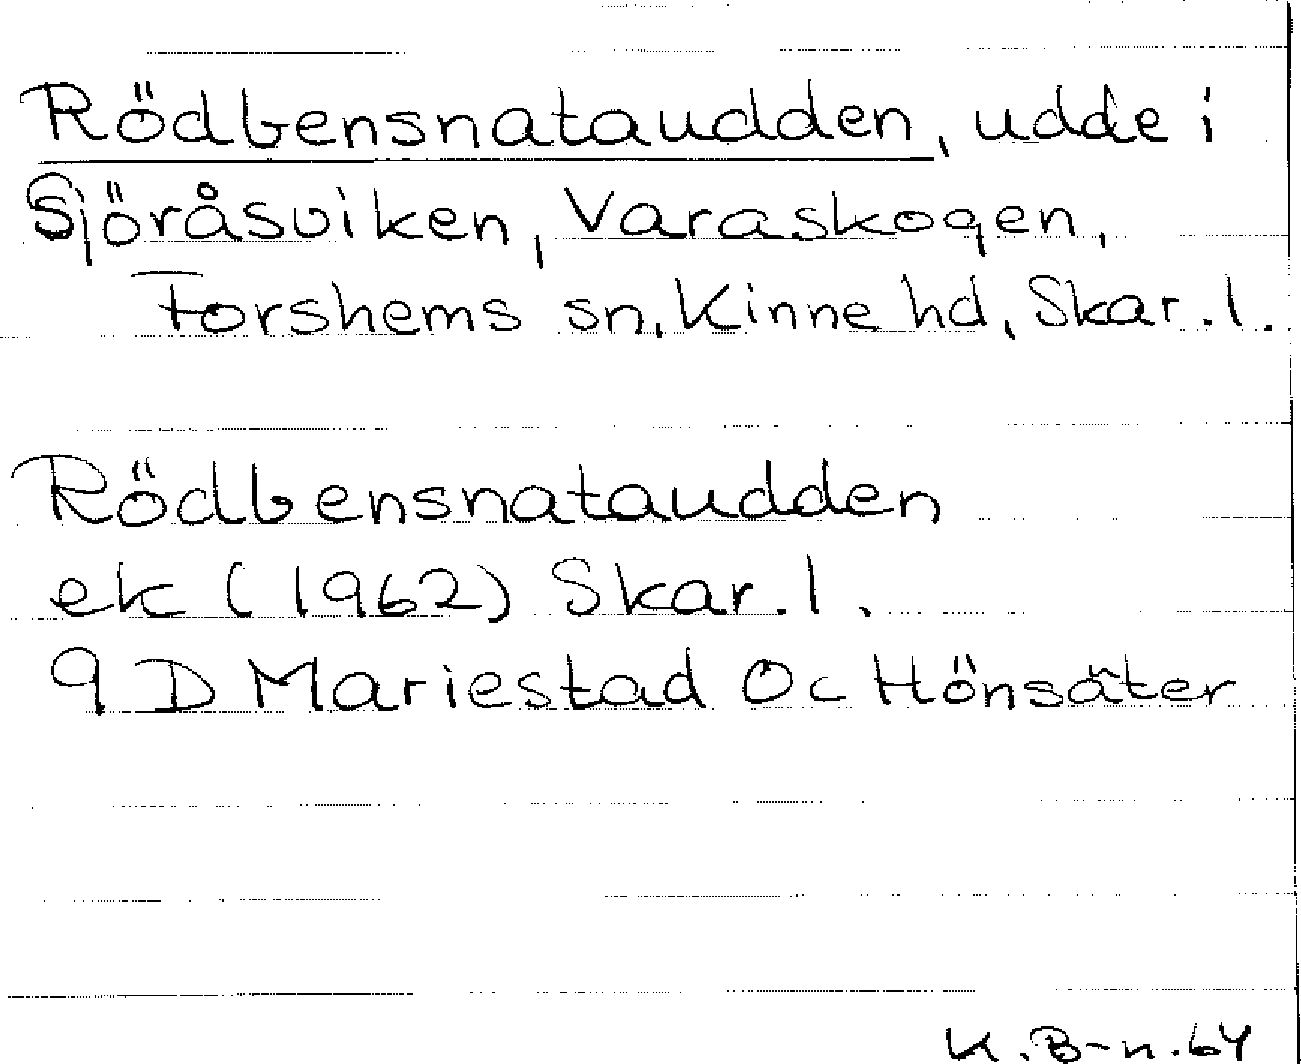 Rödbensnataudden, udde i
Sjöråsviken, Varaskogen,
Forshems sn, Kinne hd, Skar. l.
Rödbensnataudden
ek (1962) Skar. l.
9 D Mariestad Oc Hönsäter
K. B-n. 64